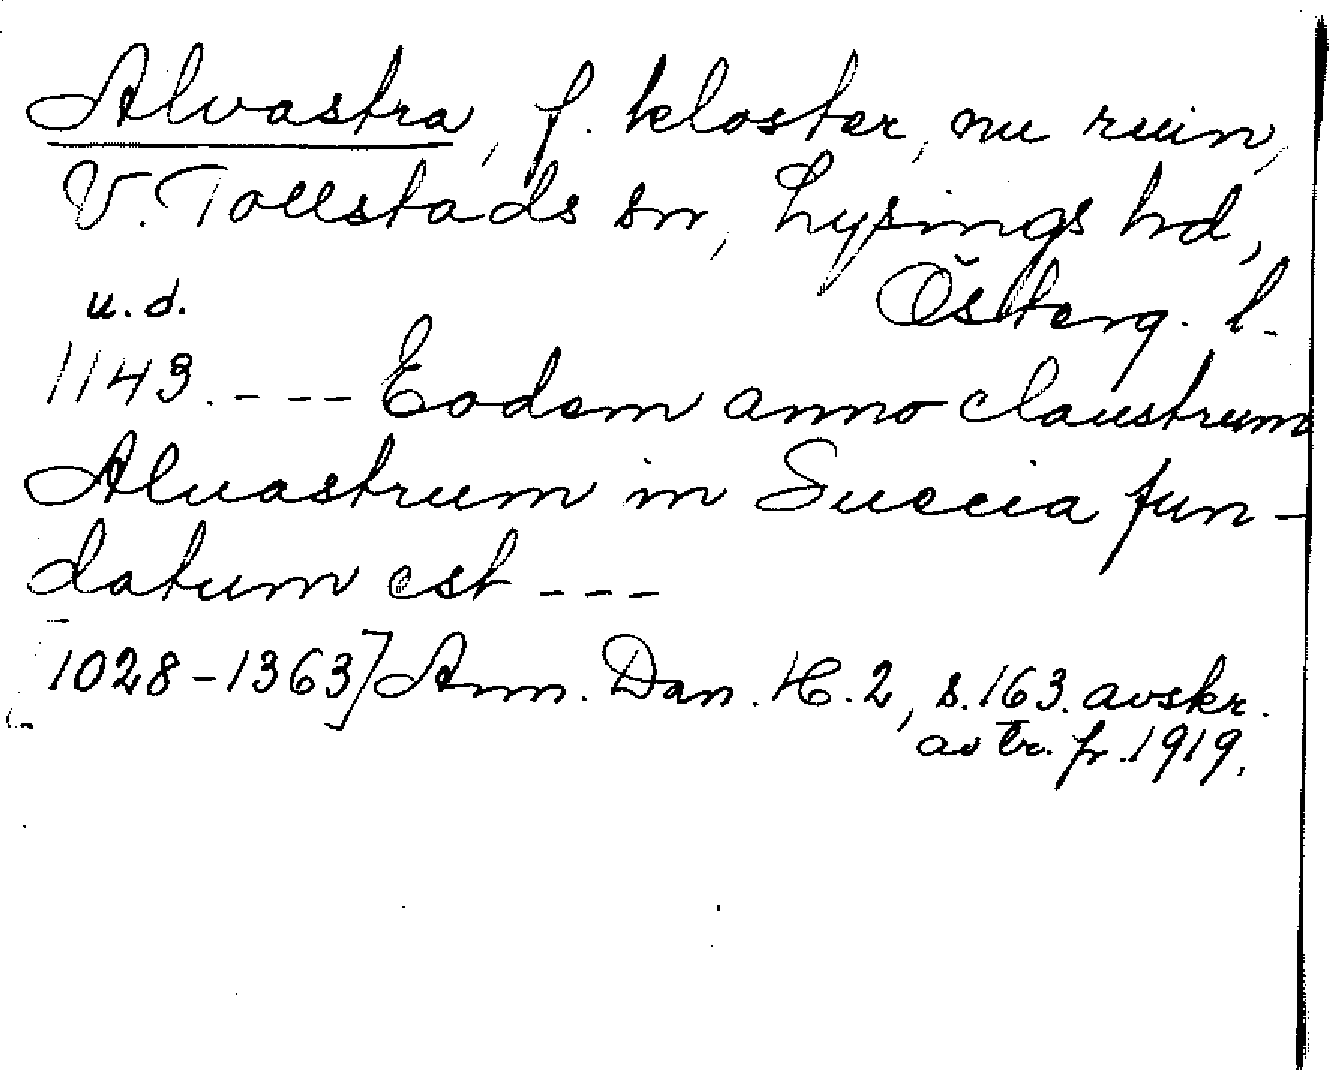 Alvastra, f. kloster, nu ruin,
V. Tollstads sn, Lysings hd,
Österg. l.
u.d.
1143. - - - Eodem anno claustrum
Aluastrum in Suecia fun-
datum est - - -
1028-1363] Ann. Dan. H. 2, s. 163. avskr.
av tr. fr. 1919.